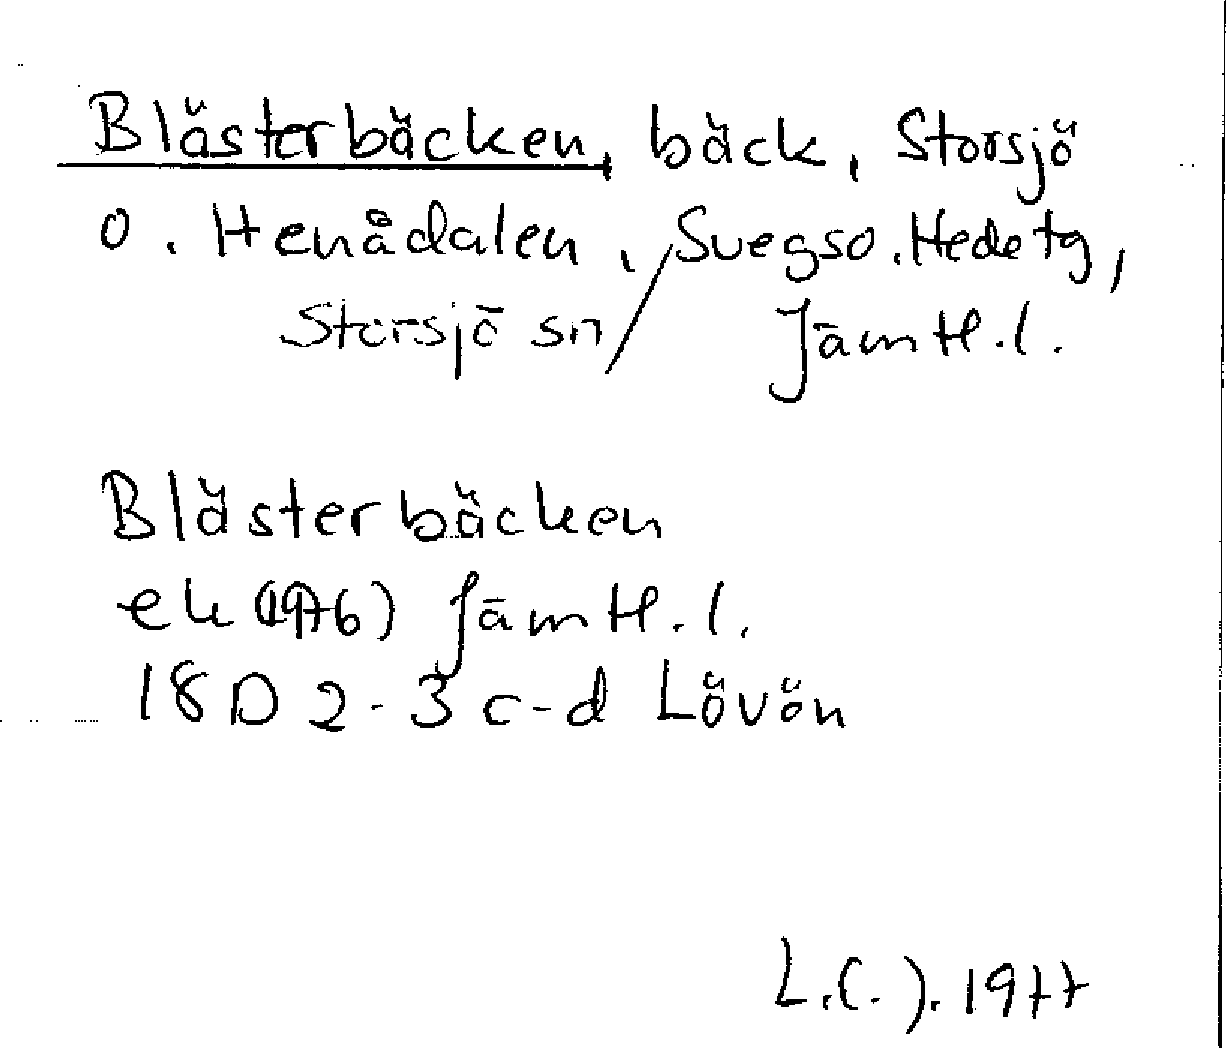 Blästerbäcken, bäck, Storsjö
o. Henådalen, / Svegs o. Hede tg,
Storsjö sn / Jämtl. l.
Blästerbäcken
ek (1976) Jämtl. l.
18D 2-3 c-d Lövön
L.C.J. 1977